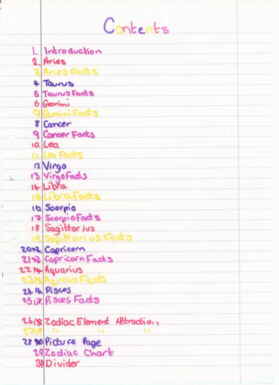 Contents
1. Introduction
2. Aries
3 Aries Facts
4 Taurus
5 Taurus Facts
6 Gemini
7 Gemini Facts
8 Cancer
9 Cancer Facts
10 Leo
11 Leo Facts
12 Virgo
13 Virgo Facts
14 Libra
15 Libra Facts
16 Scorpio
17 Scorpio Facts
18 Sagittarius
19 Sagittarius Facts
Capricorn
Capricorn Facts
Aquarius
Aquarius Facts
Pisces
Pisces Facts
Zodiac Element Attraction
" " "
Picture Page
29 Zodiac Chart
30 Divider